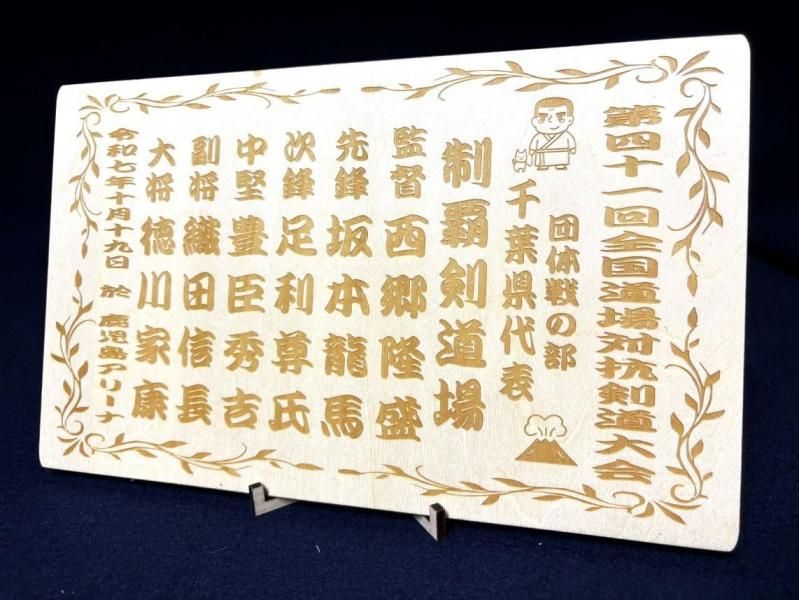 第四十一回全国道場対抗剣道大会
団体戦の部
千葉県代表
制覇剣道場
監督 西郷隆盛
先鋒 坂本龍馬
次鋒 足利尊氏
中堅 豊臣秀吉
副将 織田信長
大将 徳川家康
令和七年十月十九日 於 鹿児島アリーナ